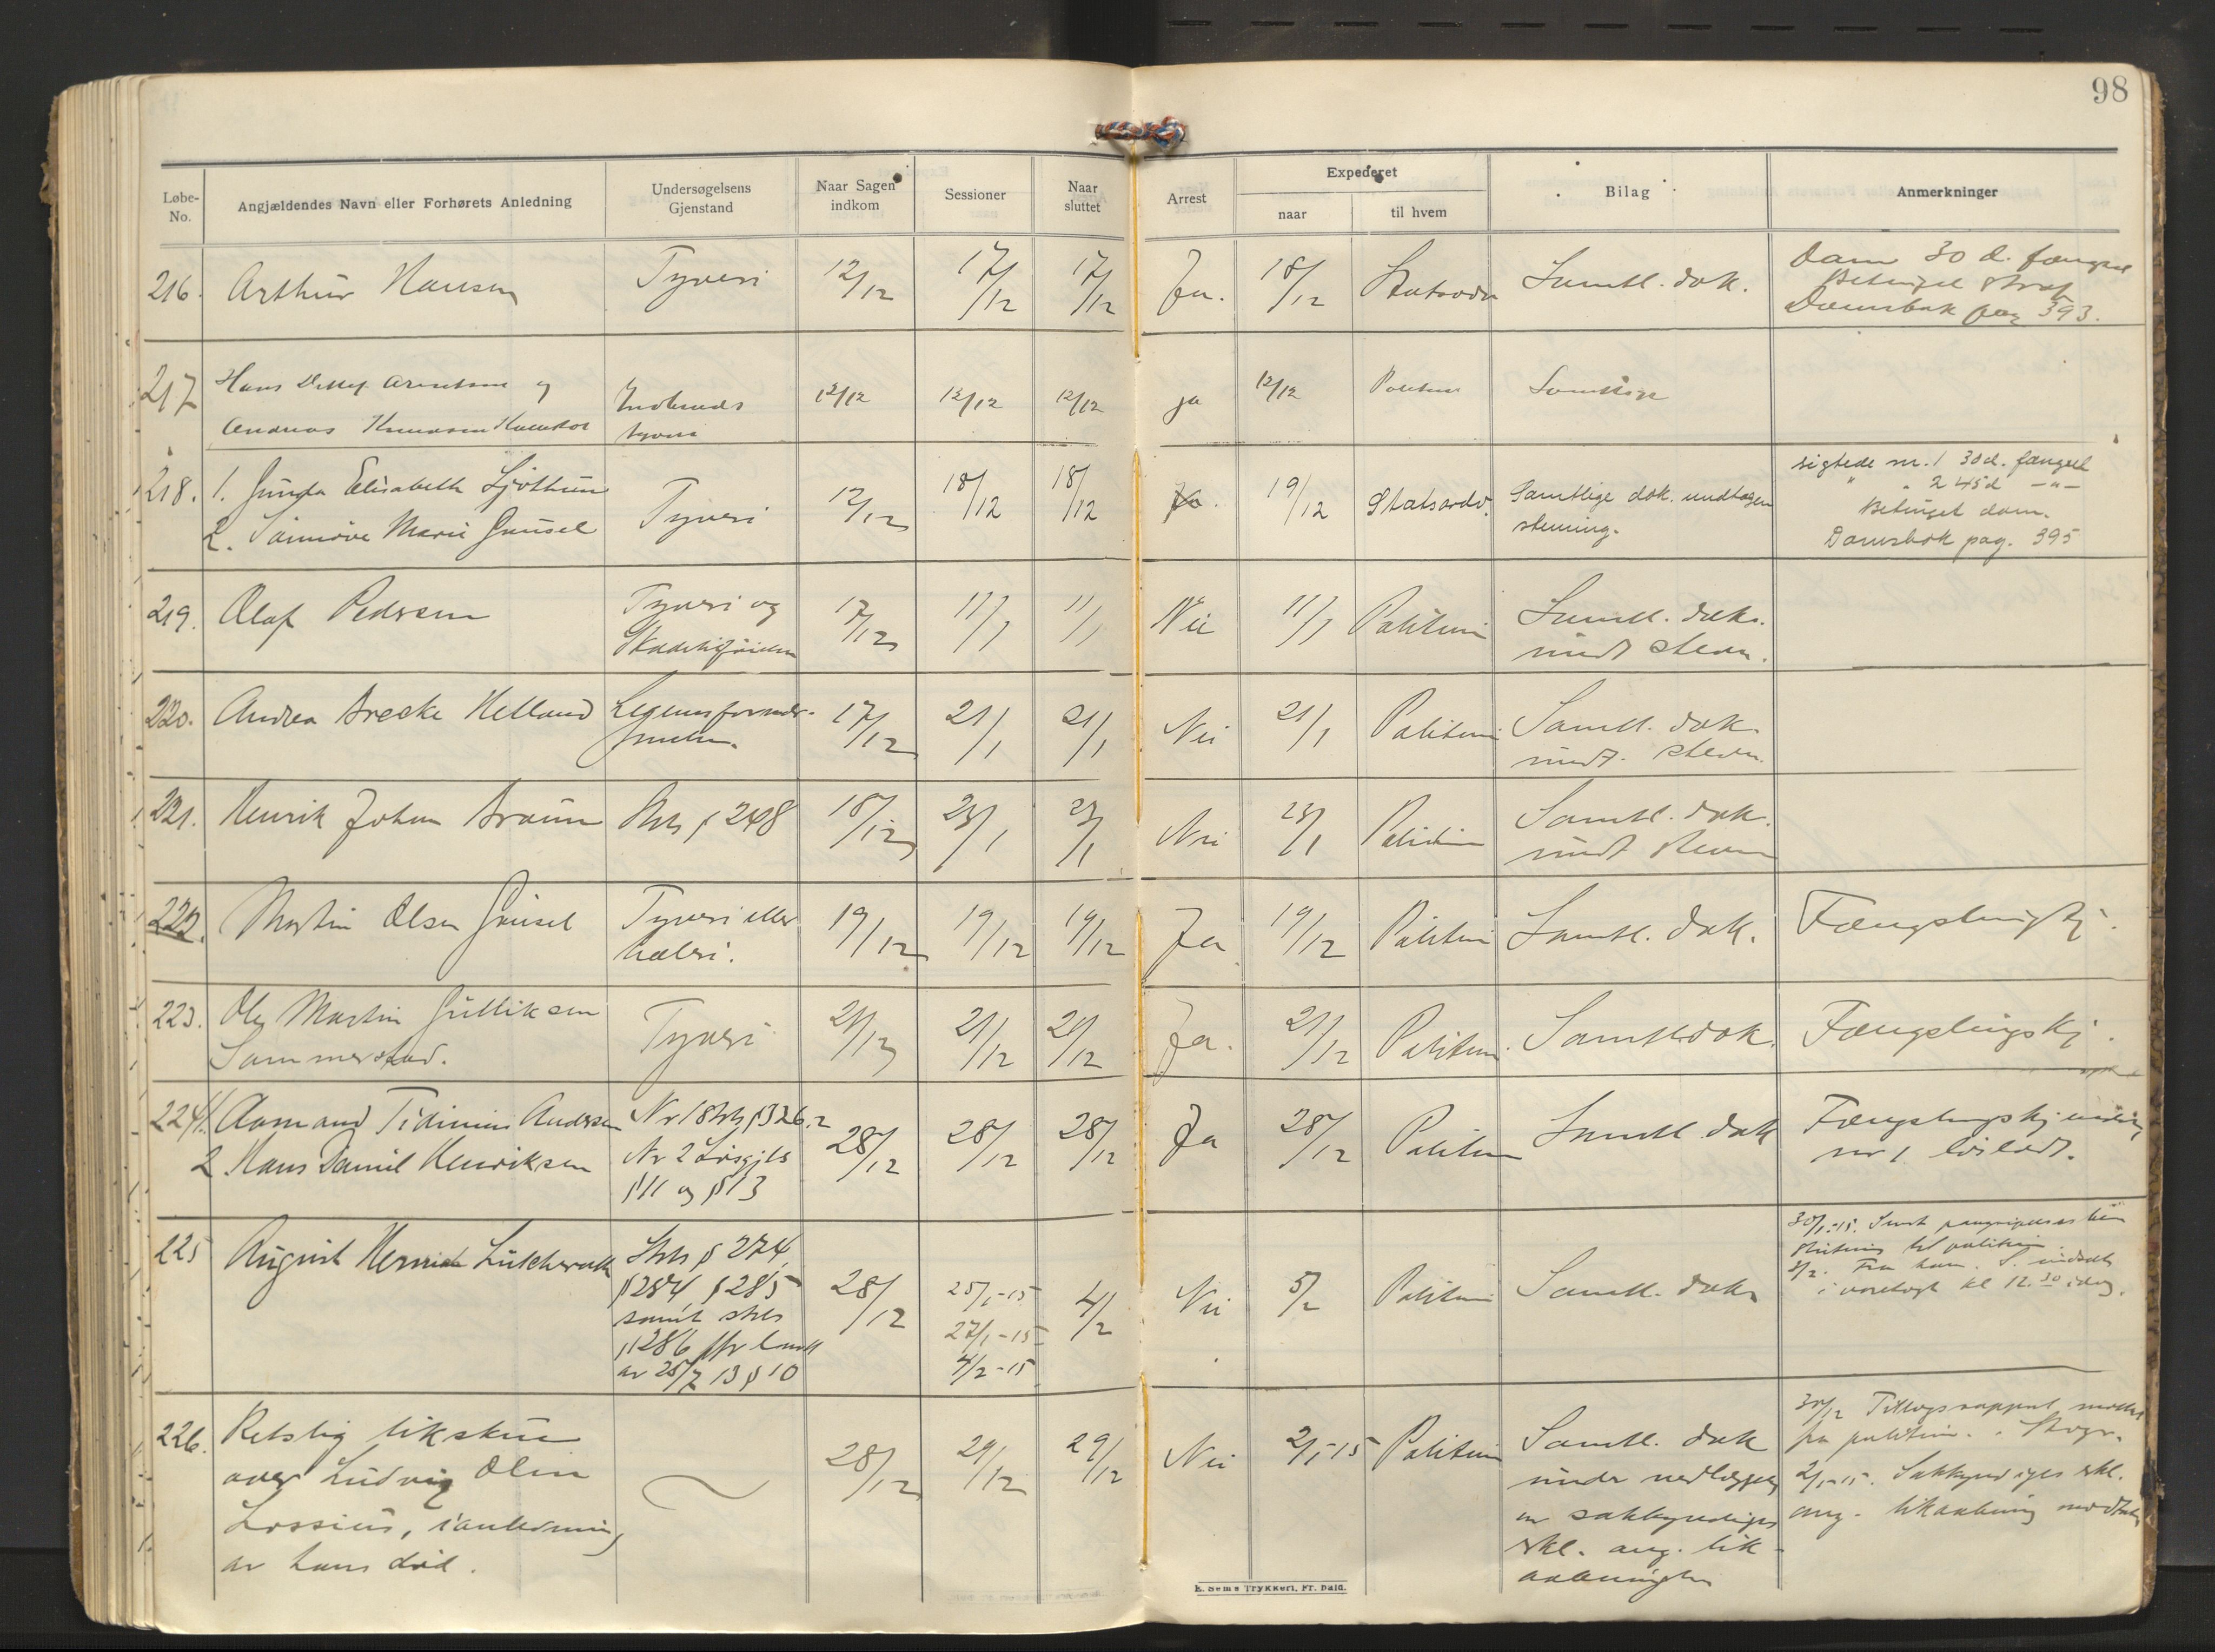 98
Løbe-No. Angjældendes Navn eller Forhørets Anledning Undersøgelsens Gjenstand Naar Sagen indkom Sessioner Naar sluttet Arrest Expederet naar til hvem Bilag Anmerkninger
216. Arthur Hansen Tyveri 12/12 17/12 17/12 Ja. 18/12 Statsadv Samtl. dok. Dom 30 d. fængsel
Betinget straf
Domsbok pag 393.
217 Hans Arentsen og
Andreas Knudsen Indbruds 12/12 12/12 12/12 ja 12/12 Politiet Samtlige
tyveri
218. 1. Gunda Elisabeth Ljothun Tyveri 12/12 18/12 18/12 Ja. 19/12 Statsadv. Samtlige dok. undtagen sigtede nr. 1 30 d. fængsel
2. Sannøve Marie Grusel stevning. " " 2 45 d —"—
Betinget dom.
Domsbok pag. 395
219. Olaf Pedersen Tyveri og 17/12 11/1 11/1 Nei 11/1 Politiet Samtl. dok.
undt stevn.
220. Andrea Brecke Helland Legems 17/12 21/1 21/1 Nei 21/1 Politiet Samtl. dok.
undt. stevn.
221. Henrik Johan Braun Strl § 248 18/12 23/1 23/1 Nei 23/1 Politiet Samtl. dok.
undt stevn
222. Martin Olsen Grusel Tyveri eller 19/12 19/12 19/12 Ja 19/12 Politiet Samtl. dok. Fængslingskj.
hæleri.
223. Ole Martin Gulliksen Tyveri 21/12 21/12 21/12 Ja. 21/12 Politiet Samtl dok. Fængslingskj.
Sommerstad.
224 1. Aamand Andersen Nr 1 Strls § 326.2 28/12 28/12 28/12 Ja 28/12 Politiet Samtl dok Fængslingskj
2 Hans Daniel Henriksen Nr 2 Løsgjls nr 1 løslatt.
§ 11 og § 13
225 August Henrich Strls § 274, 28/12 25/1-15 4/2 Nei 5/2 Politiet Samtl. dok. 30/1-15.
§ 284 § 285 27/1-15 til politiet
samt strls 4/2-15 i kl 12.30 idag.
§ 286 jfr
av 25/7 13 § 10
226. Retslig likskue 28/12 29/12 29/12 Nei 2/1-15 Politiet Samtl. dok 30/12 Tillægsrapport
over Ludvig Olin under nedlæggelse fra politiet.
Lossius, i anledning av sakkyndiges 2/1-15. Sakkyndiges erkl.
av hans død. erkl. ang. lik- ang. likaabning
aabningen
E. Sems Trykkeri, Fr. hald.